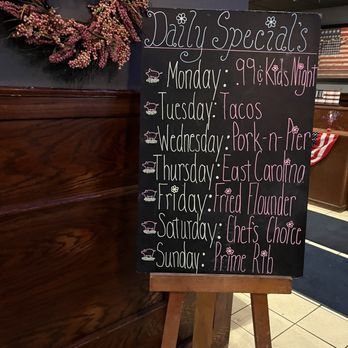 Daily Special's
Monday: 99¢ Kids Night
Tuesday: Tacos
Wednesday: Pork-n-Pier
Thursday: East Carolina
Friday: Fried Flounder
Saturday: Chefs Choice
Sunday: Prime Rib